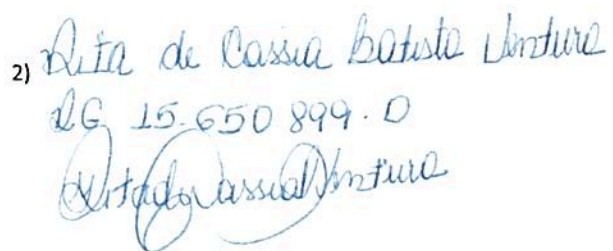 2) Rita de Cassia Batista Ventura
RG 15.650 899. D
Rita de Cassia Ventura